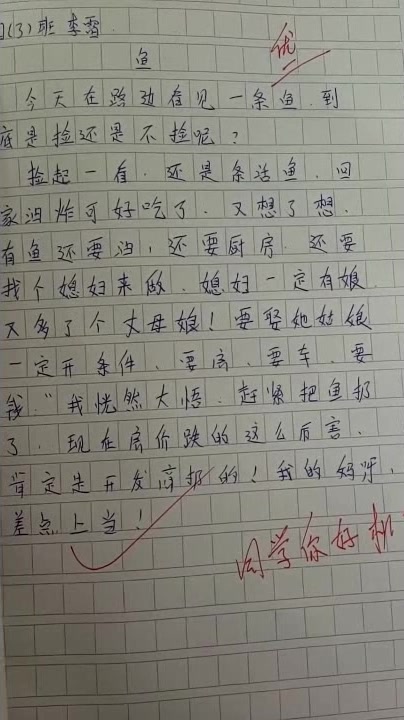 (3)班 李雪
优
鱼
今天在路边看见一条鱼.到
底是捡还是不捡呢?
捡起一看.还是条活鱼.回
家油炸可好吃了.又想了想.
有鱼还要油,还要厨房.还要
找个媳妇来做.媳妇一定有娘.
又多了个丈母娘!要娶她姑娘
一定开条件.要房.要车.要
钱."我恍然大悟.赶紧把鱼扔
了.现在房价跌的这么厉害.
肯定是开发商扔的!我的妈呀,
差点上当!
同学你好机